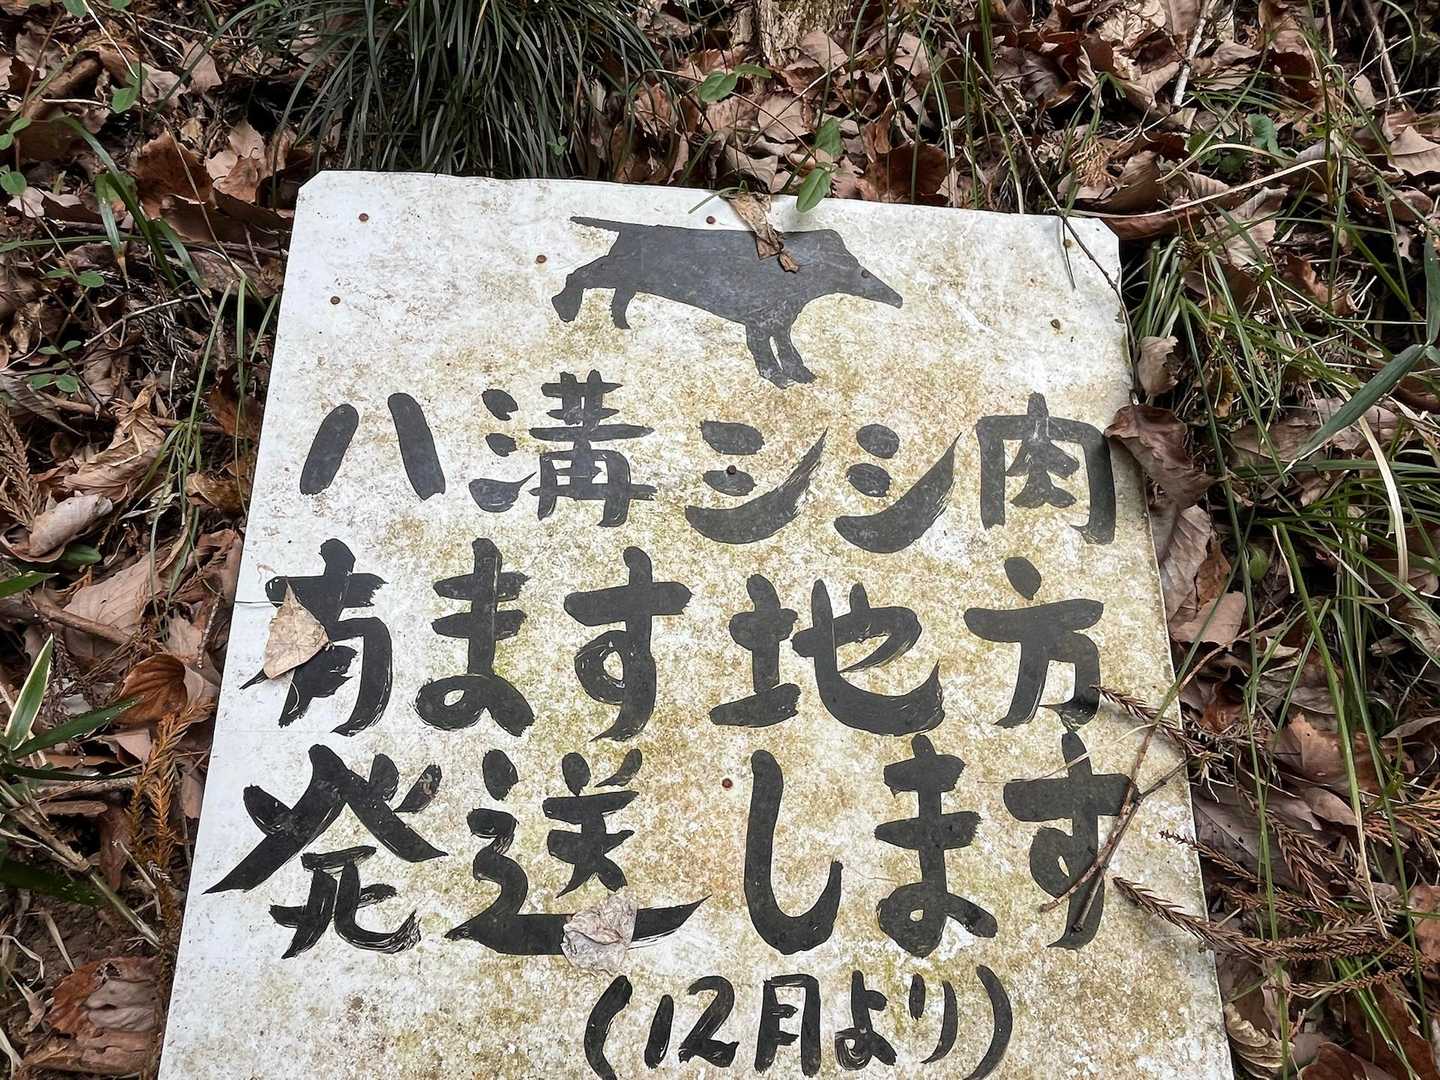 八溝シシ肉
有ます地方
発送します
(12月より)